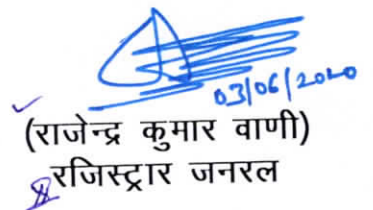 03/06/2020
(राजेन्द्र कुमार वाणी)
रजिस्ट्रार जनरल